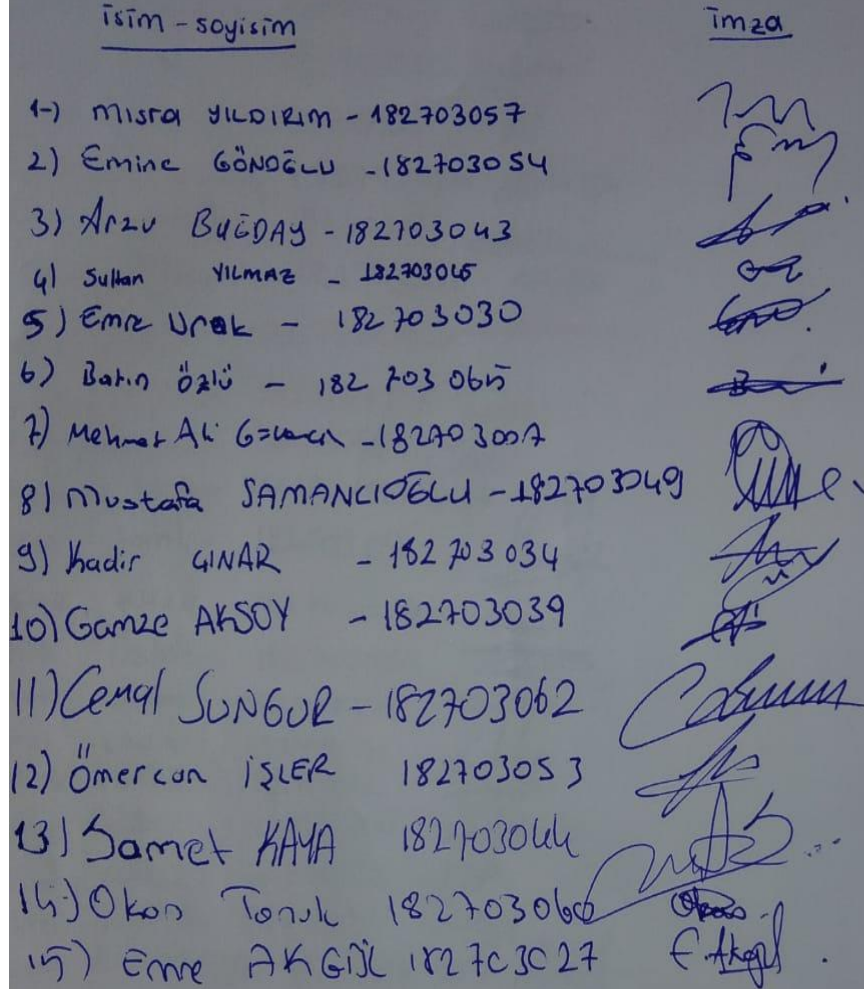 isim - soyisim imza
1-) Mısra YILDIRIM - 182703057
2) Emine GÖNOĞLU - 182703054
3) Arzu BUĞDAY - 182703043
4) Sultan YILMAZ - 182703045
5) Emre Urak - 182703030
6) Batın özlü - 182 703 065
7) Mehmet Ali - 182703007
8) Mustafa SAMANCIOĞLU - 182703049
9) Kadir ÇINAR - 182703034
10) Gamze AKSOY - 182703039
11) Cemal SUNGUR - 182703062
12) Ömercan İŞLER 182703053
13) Samet KAYA 182703044
14) Okan Tonuk 182703060
15) Emre AKGÜL 182703027 E.Akgül